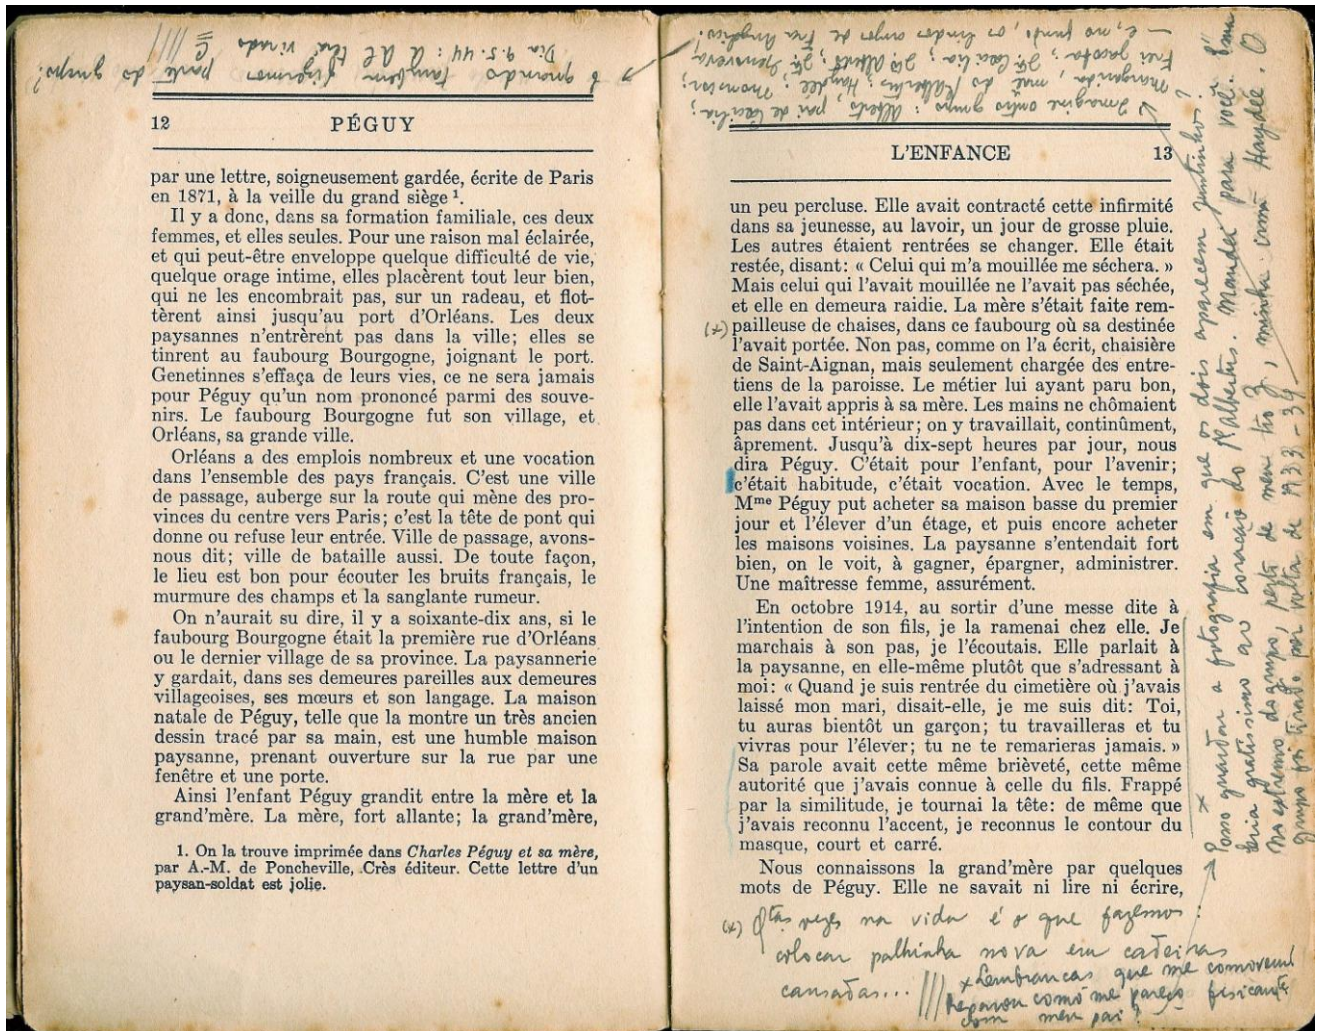 e quando também fizermos parte do grupo?
Dia 9.5.44: a al terá virado
12
PÉGUY
par une lettre, soigneusement gardée, écrite de Paris
en 1871, à la veille du grand siège 1.
Il y a donc, dans sa formation familiale, ces deux
femmes, et elles seules. Pour une raison mal éclairée,
et qui peut-être enveloppe quelque difficulté de vie,
quelque orage intime, elles placèrent tout leur bien,
qui ne les encombrait pas, sur un radeau, et flot-
tèrent ainsi jusqu'au port d'Orléans. Les deux
paysannes n'entrèrent pas dans la ville; elles se
tinrent au faubourg Bourgogne, joignant le port.
Genetinnes s'effaça de leurs vies, ce ne sera jamais
pour Péguy qu'un nom prononcé parmi des souve-
nirs. Le faubourg Bourgogne fut son village, et
Orléans, sa grande ville.
Orléans a des emplois nombreux et une vocation
dans l'ensemble des pays français. C'est une ville
de passage, auberge sur la route qui mène des pro-
vinces du centre vers Paris; c'est la tête de pont qui
donne ou refuse leur entrée. Ville de passage, avons-
nous dit; ville de bataille aussi. De toute façon,
le lieu est bon pour écouter les bruits français, le
murmure des champs et la sanglante rumeur.
On n'aurait su dire, il y a soixante-dix ans, si le
faubourg Bourgogne était la première rue d'Orléans
ou le dernier village de sa province. La paysannerie
y gardait, dans ses demeures pareilles aux demeures
villageoises, ses mœurs et son langage. La maison
natale de Péguy, telle que la montre un très ancien
dessin tracé par sa main, est une humble maison
paysanne, prenant ouverture sur la rue par une
fenêtre et une porte.
Ainsi l'enfant Péguy grandit entre la mère et la
grand'mère. La mère, fort allante; la grand'mère,
1. On la trouve imprimée dans Charles Péguy et sa mère,
par A.-M. de Poncheville, Crès éditeur. Cette lettre d'un
paysan-soldat est jolie.
Imagine outro grupo: Alberto, pai de Cecília;
Margarida, mãe do Alberto; Haydée; Thomson;
Frei Jacoba; Sta Cecília; Sto Alberto; Sta
— e, no fundo, os lindos anjos de Fra Angelico.
L'ENFANCE
13
un peu percluse. Elle avait contracté cette infirmité
dans sa jeunesse, au lavoir, un jour de grosse pluie.
Les autres étaient rentrées se changer. Elle était
restée, disant: « Celui qui m'a mouillée me séchera. »
Mais celui qui l'avait mouillée ne l'avait pas séchée,
et elle en demeura raidie. La mère s'était faite rem-
(x) pailleuse de chaises, dans ce faubourg où sa destinée
l'avait portée. Non pas, comme on l'a écrit, chaisière
de Saint-Aignan, mais seulement chargée des entre-
tiens de la paroisse. Le métier lui ayant paru bon,
elle l'avait appris à sa mère. Les mains ne chômaient
pas dans cet intérieur; on y travaillait, continûment,
âprement. Jusqu'à dix-sept heures par jour, nous
dira Péguy. C'était pour l'enfant, pour l'avenir;
c'était habitude, c'était vocation. Avec le temps,
Mme Péguy put acheter sa maison basse du premier
jour et l'élever d'un étage, et puis encore acheter
les maisons voisines. La paysanne s'entendait fort
bien, on le voit, à gagner, épargner, administrer.
Une maîtresse femme, assurément.
En octobre 1914, au sortir d'une messe dite à
l'intention de son fils, je la ramenai chez elle. Je
marchais à son pas, je l'écoutais. Elle parlait à
la paysanne, en elle-même plutôt que s'adressant à
moi: « Quand je suis rentrée du cimetière où j'avais
laissé mon mari, disait-elle, je me suis dit: Toi,
tu auras bientôt un garçon; tu travailleras et tu
vivras pour l'élever; tu ne te remarieras jamais. »
Sa parole avait cette même brièveté, cette même
autorité que j'avais connue à celle du fils. Frappé
par la similitude, je tournai la tête: de même que
j'avais reconnu l'accent, je reconnus le contour du
masque, court et carré.
Nous connaissons la grand'mère par quelques
mots de Péguy. Elle ne savait ni lire ni écrire,
(x) Qtas vezes na vida é o que fazemos:
colocar palhinha nova em cadeiras
cansadas...
x Lembranças que me comovem
Reparou como me pareço fisicamte
com meu pai?
x guardar a fotografia em que os dois aparecem juntinhos?
seria gratíssimo ao coração do Malbertus. Mandei para você. É uma
No extremo do grupo, perto de meu tio Z, minha irmã Haydée. O
grupo foi tirado por volta de 1933-34